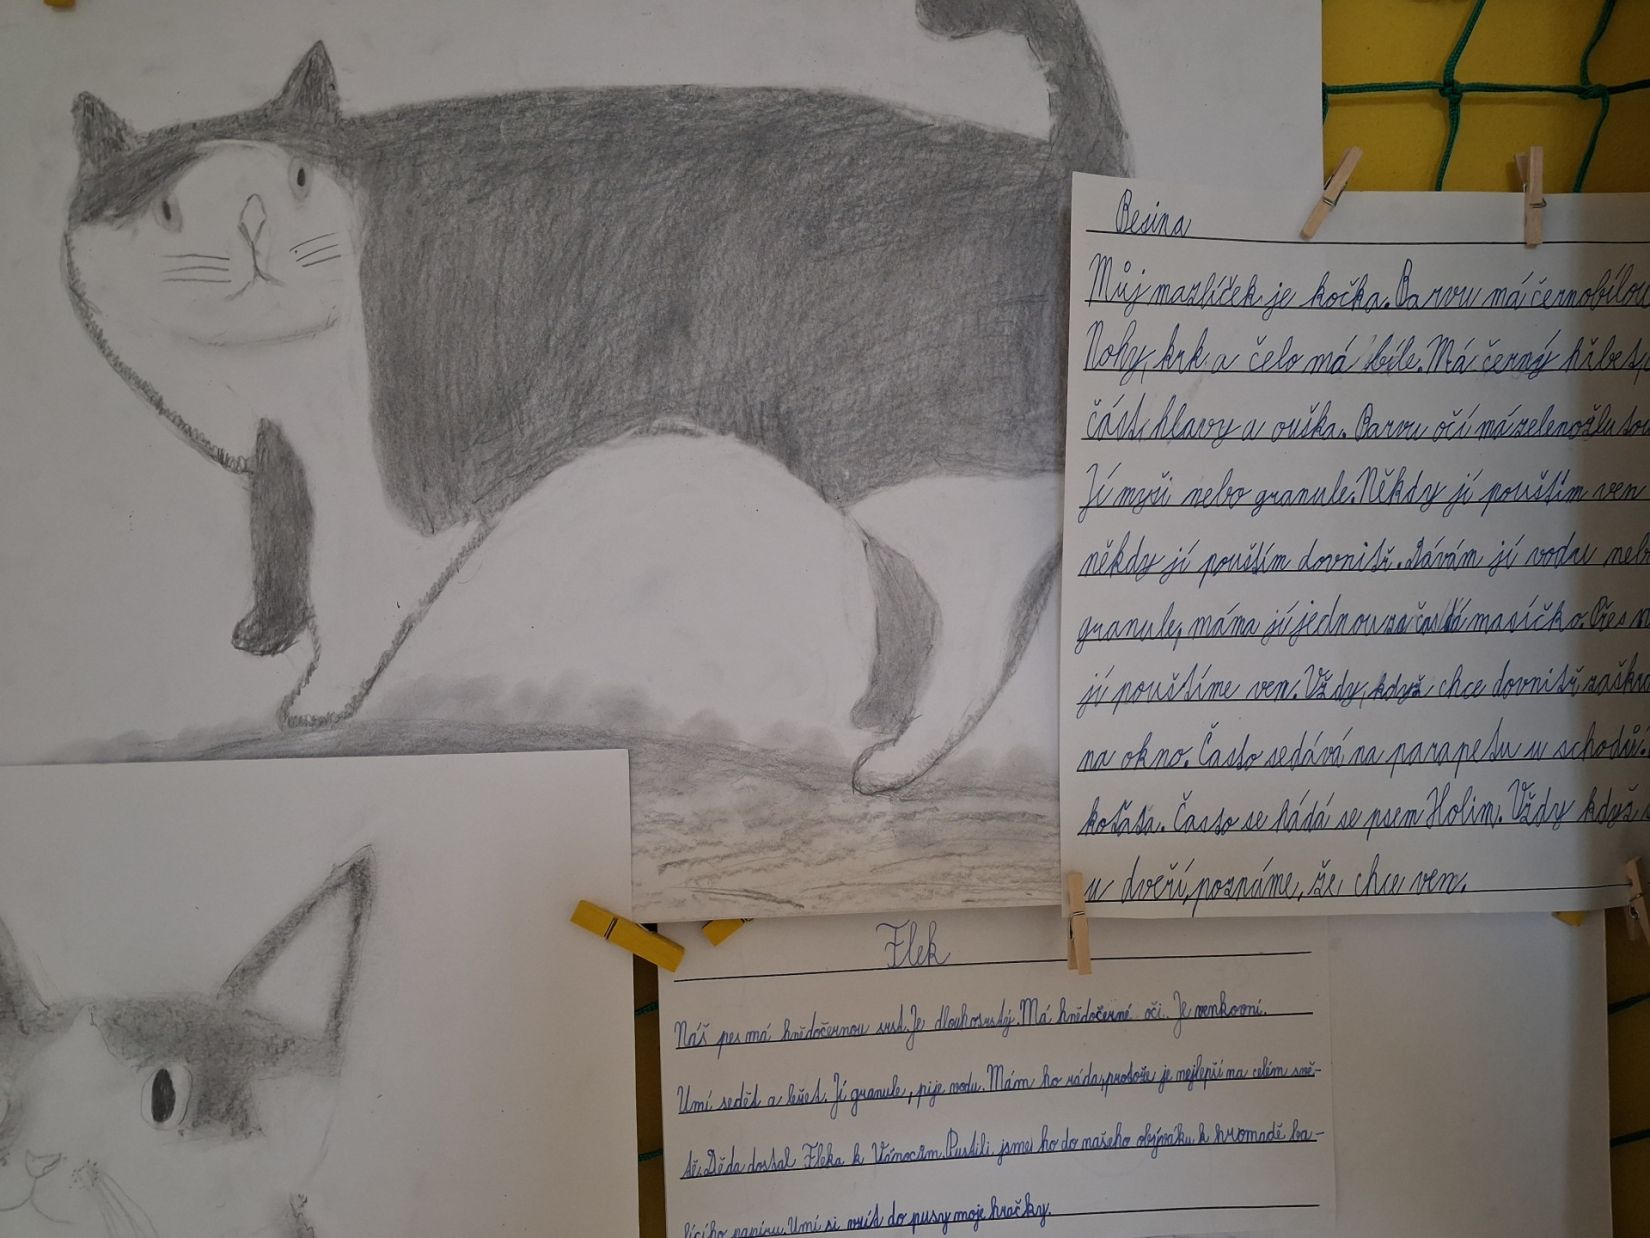 Besina
Můj mazlíček je kočka. Barvu má černobílou
Nohy, krk a čelo má bílé. Má černý hřbet,
část hlavy a ouška. Barvu očí má zelenožlutou
Jí myši nebo granule. Někdy jí pouštím ven
někdy jí pouštím dovnitř. Dávám jí vodu nebo
granule, máma jí jednou za čas dá masíčko. Přes
jí pouštíme ven. Vždy, když chce dovnitř,
na okno. Často sedává na parapetu u schodů.
koťata. Často se hádá se psem Holim. Vždy když
u dveří, poznáme, že chce ven.
Flek
Náš pes má hnědočernou srst. Je dlouhosrstý. Má hnědočerné oči. Je venkovní.
Umí sedět a ležet. Jí granule, pije vodu. Mám ho ráda, protože je nejlepší na celém svě-
tě. Děda dostal Fleka k Vánocům. Pustili jsme ho do našeho obýváku k hromadě ba-
lícího papíru. Umí si vzít do pusy moje hračky.